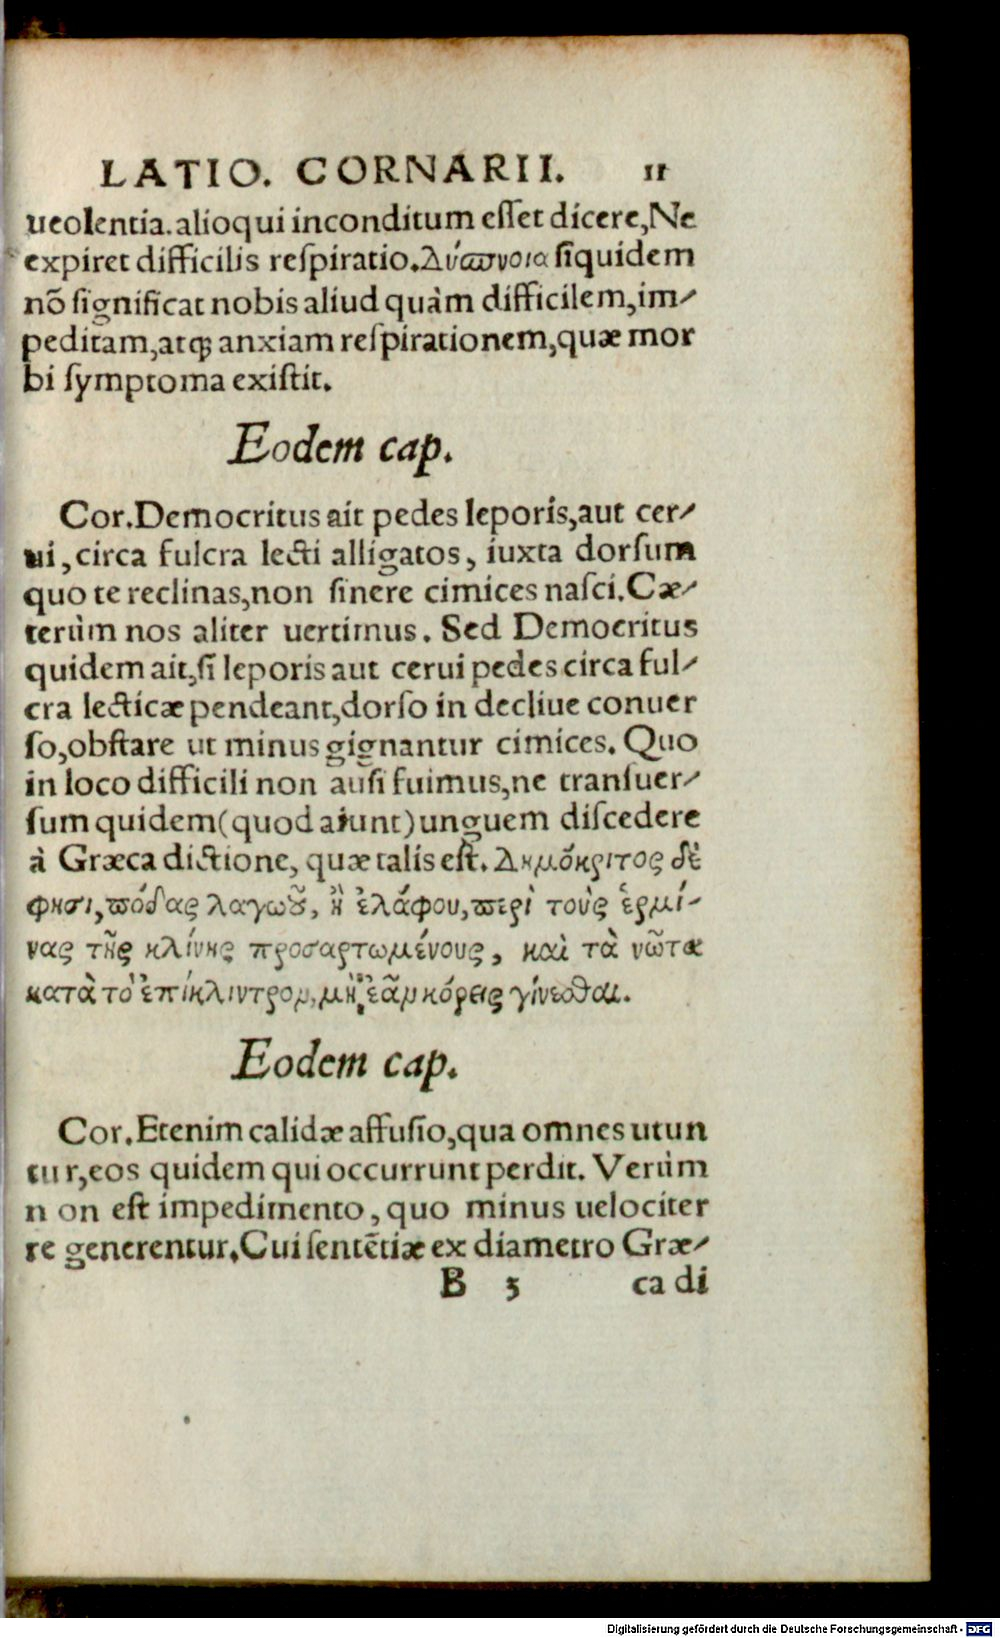 LATIO. CORNARII. 11
ueolentia. alioqui inconditum eſſet dicere, Ne
expiret difficilis reſpiratio. Δύσπνοια ſiquidem
nõ ſignificat nobis aliud quàm difficilem, im-
peditam, atq; anxiam reſpirationem, quæ mor
bi ſymptoma exiſtit.
Eodem cap.
Cor. Democritus ait pedes leporis, aut cer-
ui, circa fulcra lecti alligatos, iuxta dorſum
quo te reclinas, non ſinere cimices naſci. Cæ-
terùm nos aliter uertimus. Sed Democritus
quidem ait, ſi leporis aut cerui pedes circa ful-
cra lecticæ pendeant, dorſo in decliue conuer
ſo, obſtare ut minus gignantur cimices. Quo
in loco difficili non auſi fuimus, ne tranſuer-
ſum quidem (quod aiunt) unguem diſcedere
à Græca dictione, quæ talis eſt. Δημόκριτος δὲ
φησι, πόδας λαγωοῦ, ἢ ἐλάφου, περὶ τοὺς ἑρμί-
νας τῆς κλίνης προσαρτωμένους, καὶ τὰ νῶτα
κατὰ τὸ ἐπίκλιντρον, μὴ ἐᾶν κόρεις γίνεσθαι.
Eodem cap.
Cor. Etenim calidæ affuſio, qua omnes utun
tur, eos quidem qui occurrunt perdit. Verùm
n on eſt impedimento, quo minus uelociter
re generentur. Cui ſentẽtiæ ex diametro Græ-
B 3 ca di
Digitalisierung gefördert durch die Deutsche Forschungsgemeinschaft - DFG